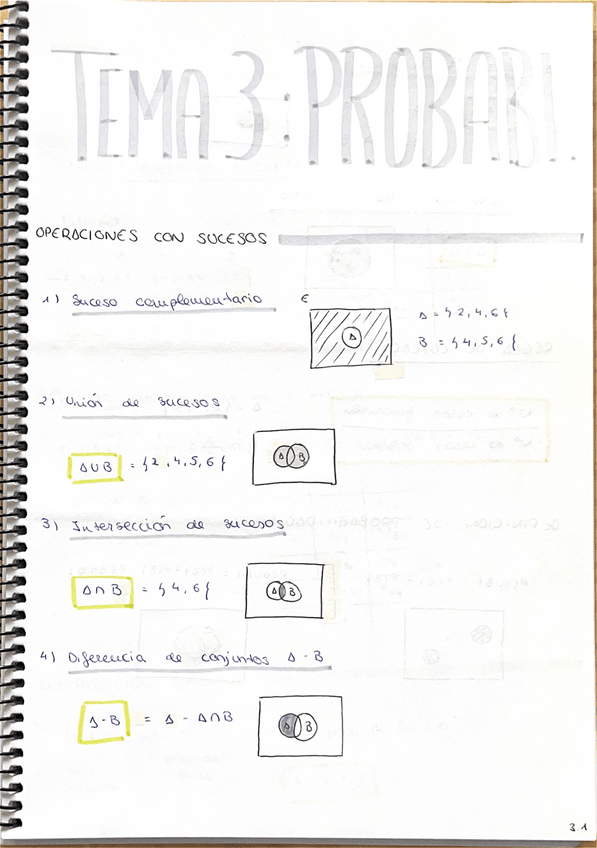 TEMA 3: PROBABI.
OPERACIONES CON SUCESOS
1) Suceso complementario
E
A
A = {2,4,6}
B = {4,5,6}
2) Unión de sucesos
A∪B = {2,4,5,6}
A B
3) Intersección de sucesos
A∩B = {4,6}
A B
4) Diferencia de conjuntos A-B
A-B = A - A∩B
A B
3.1